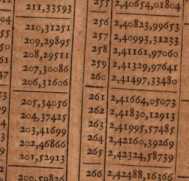 211,33593 255 2,40654,01804
210,31251 256 2,40823,99653
209,29895 257 2,40993,31233
208,29511 258 2,41161,97060
207,30086 259 2,41329,97641
206,31606 260 2,41497,33480
205,34056 261 2,41664,05073
204,37425 262 2,41830,12913
203,41699 263 2,41995,57485
202,46866 264 2,42160,39269
201,52913 265 2,42324,58739
200,59826 266 2,42488,16366